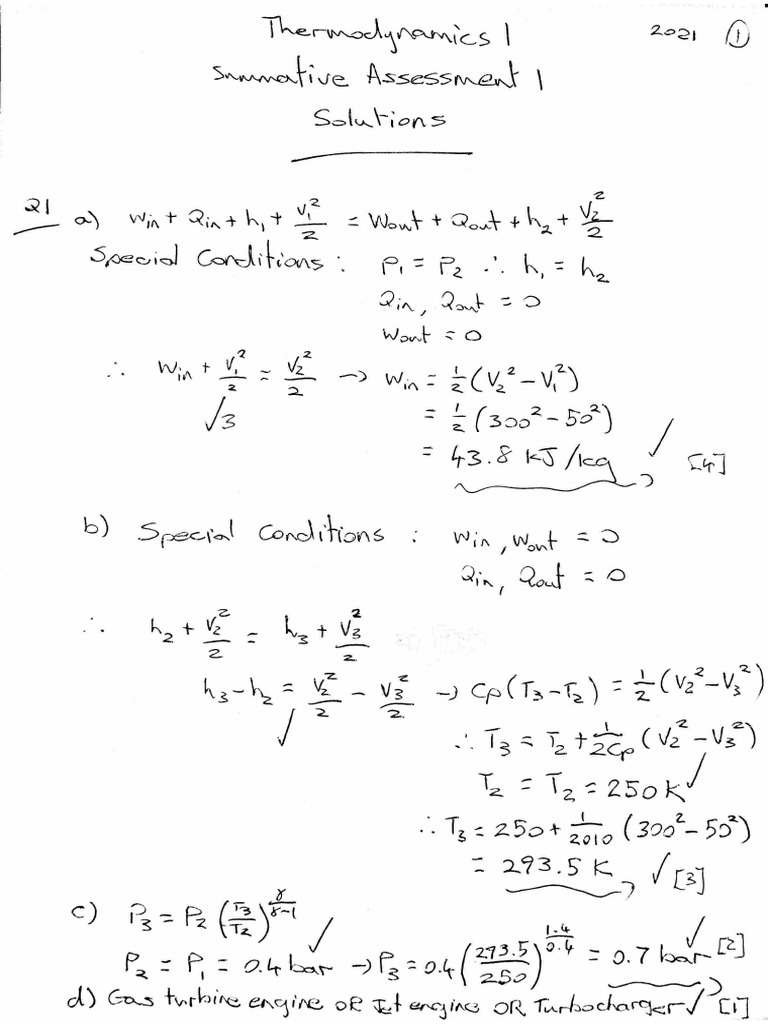 Thermodynamics 1
2021 ①
Summative Assessment 1
Solutions
Q1 a) Win + Qin + h₁ + V₁²/2 = Wout + Qout + h₂ + V₂²/2
Special Conditions : P₁ = P₂ ∴ h₁ = h₂
Qin, Qout = 0
Wout = 0
∴ Win + V₁²/2 = V₂²/2 → Win = ½(V₂² – V₁²)
√3
= ½(300² – 50²)
= 43.8 KJ/kg ✓ [4]
b) Special Conditions : Win, Wout = 0
Qin, Qout = 0
∴ h₂ + V₂²/2 = h₃ + V₃²/2
h₃ – h₂ = V₂²/2 – V₃²/2 → Cp(T₃ – T₂) = ½(V₂² – V₃²)
✓
∴ T₃ = T₂ + 1/2Cp (V₂² – V₃²)
T₂ = T₂ = 250K ✓
∴ T₃ = 250 + 1/2010 (300² – 50²)
= 293.5 K ✓ [3]
c) P₃ = P₂ (T₃/T₂)^γ/γ–1 ✓
P₂ = P₁ = 0.4 bar → P₃ = 0.4 (293.5/250)^1.4/0.4 = 0.7 bar ✓ [2]
d) Gas turbine engine OR Jet engine OR Turbocharger ✓ [1]